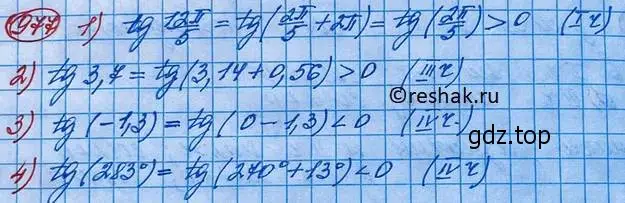 977 1) tg 12π/5 = tg(2π/5 + 2π) = tg(2π/5) > 0 (I ч)
2) tg 3,7 = tg(3,14 + 0,56) > 0 (III ч)
©reshak.ru
3) tg(-1,3) = tg(0 - 1,3) < 0 (IV ч.)
gdz.top
4) tg(283°) = tg(270° + 13°) < 0 (IV ч)